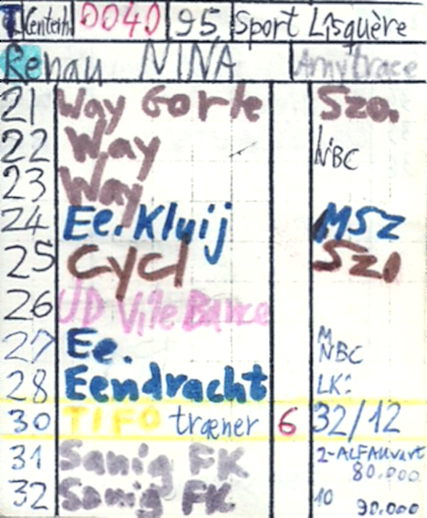 0040 95 Sport Lisquère
Renau NINA Amytrace
21 Way Gorle Szo.
22 Way NBC
23 Way
24 Ee. Kluij MSZ
25 Cycl Szo
26 UD
27 Ee. M NBC
28 Eendracht LK:
30 TIFO træner 6 32/12
31 Sanig FK 80.000
32 Sonig FK 10 90.000